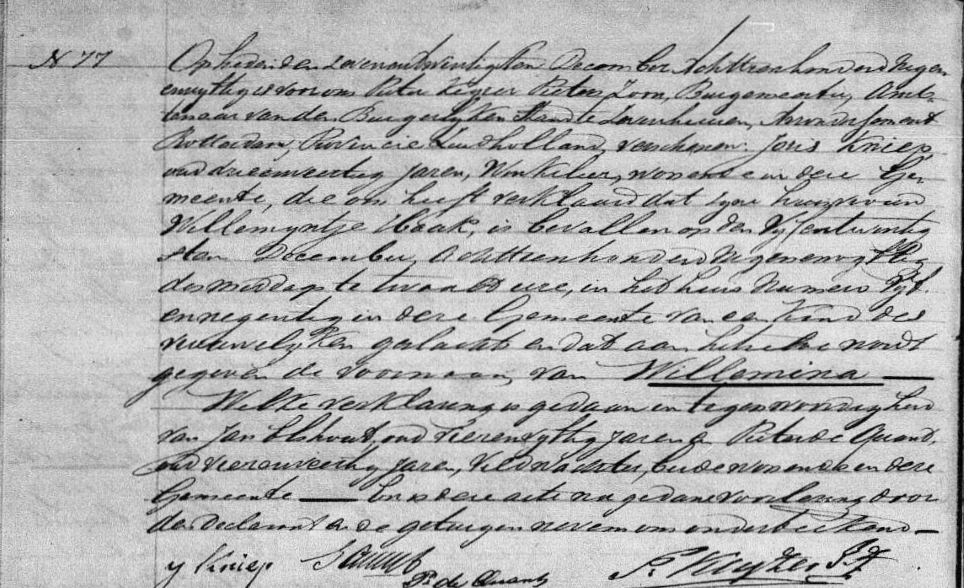 N 77
Op heden den zevenentwintigsten December Achttienhonderd negen
envyftig is voor ons Pieter Pieters Zoon, Burgemeester, Ambte-
tenaar van den Burgerlyken Stand te Zevenhuizen, Arrondissement
Rotterdam, Provincie Zuidholland, verschenen Joris Kniep
oud drieenveertig Jaren, Winkelier, wonende in deze Ge-
meente, die ons heeft verklaard dat zyne huisvrouw
Willemyntje Haak, is bevallen op den Vyfentwintig
sten December, Achttienhonderd negenenvyftig
des middags te twaalf ure, in het huis Numero Vyf
en negentig in deze Gemeente van een Kind des
vrouwelyken geslacht en dat aan hetzelve wordt
gegeven de Voornaam van Willemina
Welke verklaring is gedaan in tegenwoordigheid
van Jan Elshout, oud Vierenvyftig Jaren en Pieter de Quant,
oud Vierenveertig Jaren, Veldwachter, beide wonende in deze
Gemeente En is deze acte na gedane voorlezing door
den Declarant en de getuigen nevens ons onderteekend
J Kniep
P. de Quant